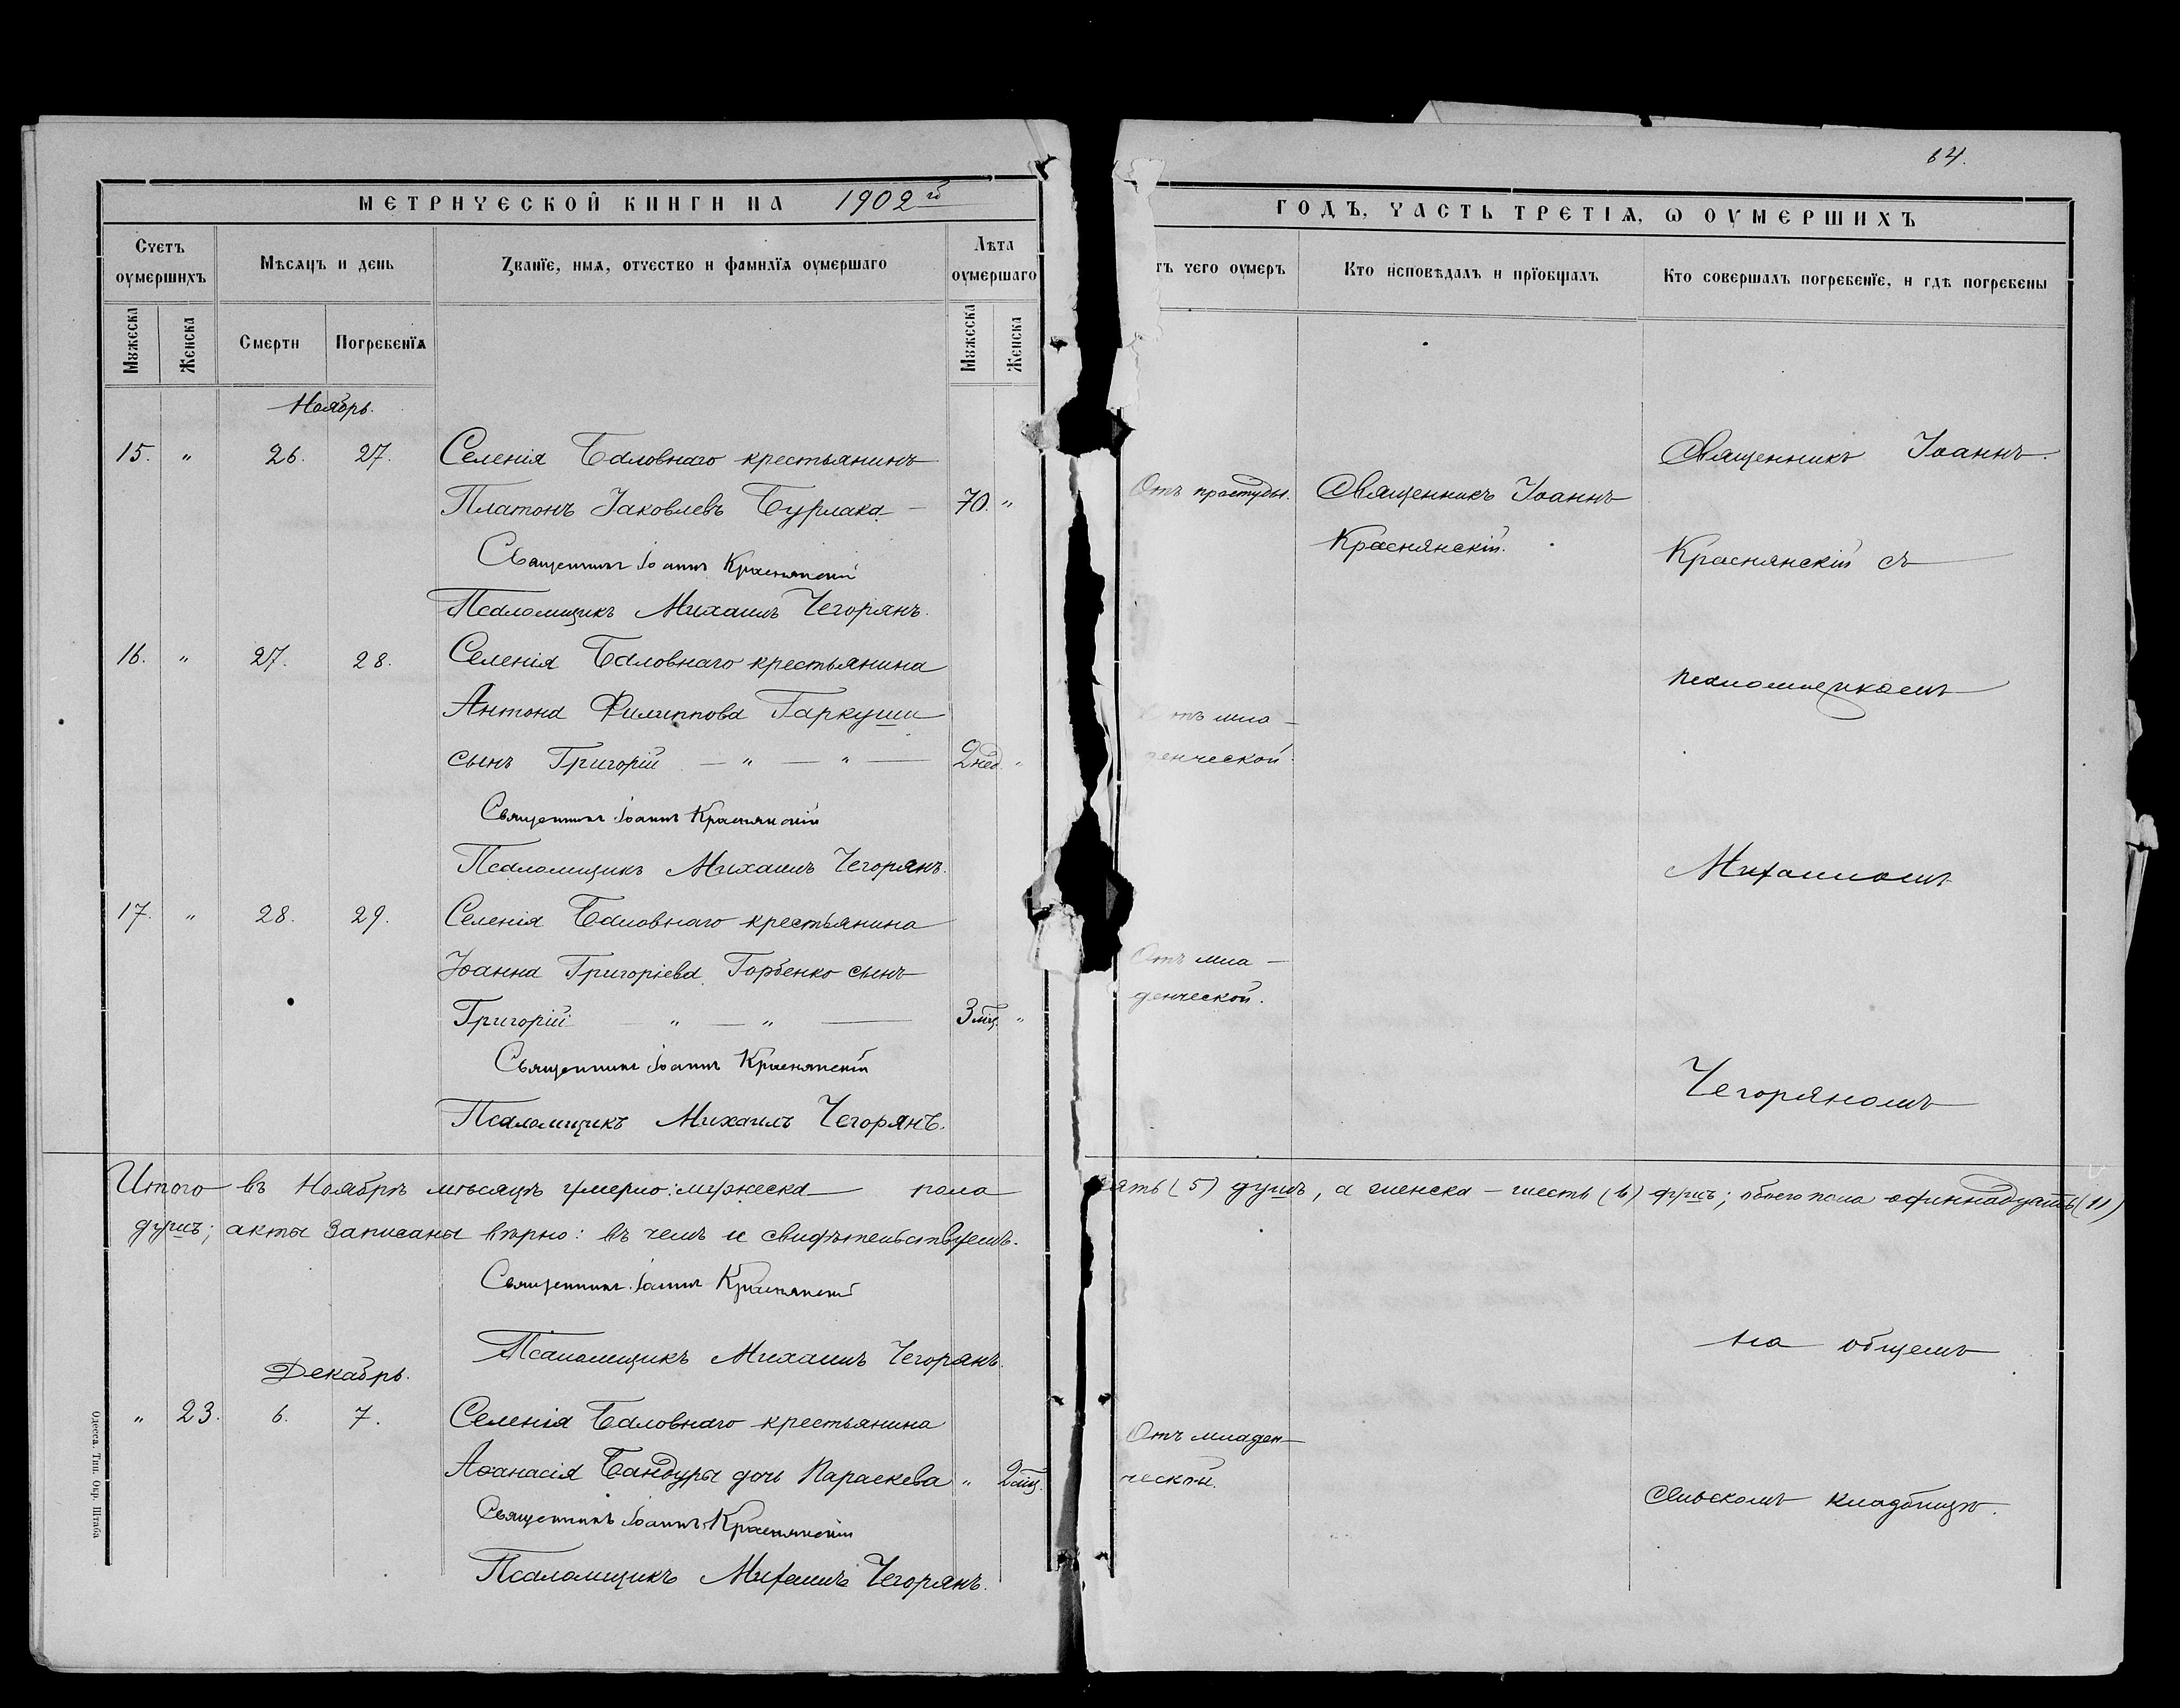 64.
МЕТРИЧЕСКОЙ КНИГИ НА 1902 й
ГОДЪ, ЧАСТЬ ТРЕТІѦ, Ѡ ОУМЕРШИХЪ
Счетъ оумершихъ
Мѣсяцъ и день
Званїе, имѧ, отчество и фамилїѧ оумершаго
Лѣта оумершаго
тъ чего оумеръ
Кто исповѣдалъ и прїобщалъ
Кто совершалъ погребенїе, и гдѣ погребены
Мꙋжеска
Женска
Смерти
Погребенїѧ
Мꙋжеска
Женска
Ноябрь.
15. " 26. 27. Селенія Баловнаго крестьянинъ
Платонъ Іаковлевъ Бурлака — 70. "
Священникъ Іоаннъ Краснянскій
Псаломщикъ Михаилъ Чегорянъ.
16. " 27. 28. Селенія Баловнаго крестьянина
Антона Филиппова Гаркуши
сынъ Григорій — " — " — 2 нед. "
Священникъ Іоаннъ Краснянскій
Псаломщикъ Михаилъ Чегорянъ.
17. " 28. 29. Селенія Баловнаго крестьянина
Іоанна Григоріева Горбенко сынъ
Григорій — " — " — 3 мѣс. "
Священникъ Іоаннъ Краснянскій
Псаломщикъ Михаилъ Чегорянъ.
Отъ простуды.
Священникъ Іоаннъ
Краснянскій.
тъ мла-
денческой.
Отъ мла-
денческой.
Священникъ Іоаннъ
Краснянскій съ
псаломщикомъ
Михаиломъ
Чегоряномъ
Итого въ Ноябрѣ мѣсяцѣ умерло: мужеска — пола пять (5) душъ, а женска — шесть (6) душъ; обоего пола одиннадцать (11)
душъ; акты записаны вѣрно: въ чемъ и свидѣтельствуемъ.
Священникъ Іоаннъ Краснянскій
Псаломщикъ Михаилъ Чегорянъ.
Декабрь.
" 23. 6. 7. Селенія Баловнаго крестьянина
Аѳанасія Бандуры дочь Параскева " 2 мѣс.
Священникъ Іоаннъ Краснянскій
Псаломщикъ Михаилъ Чегорянъ.
Отъ младен-
ческой.
на общемъ
сельскомъ кладбищѣ.
Одесса. Тип. Окр. Штаба